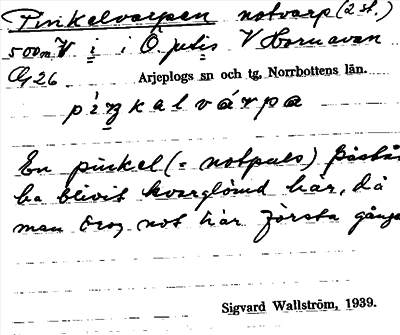 Pinkelvarpen notvarp (2 st.)
500m V i i Ö. jutis V Hornavan
26 Arjeplogs sn och tg, Norrbottens län.
En pinkel (= notpuls) påstås
ha blivit kvarglömd här, då
man drog not här första gången
Sigvard Wallström, 1939.